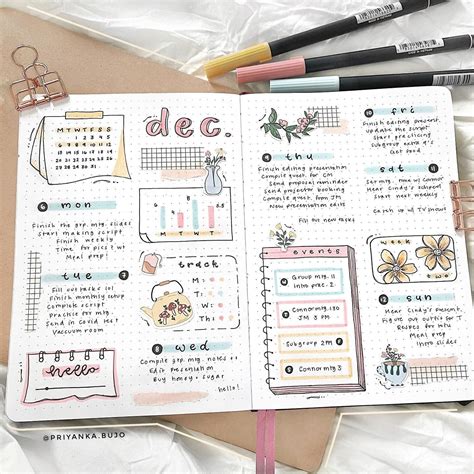 dec.
M T W T F S S
1 2 3 4 5
6 7 8 9 10 11 12
13 14 15 16 17 18 19
20 21 22 23 24 25 26
27 28 29 30 31
6 mon
Finish the grp. mtg. slides
Start making script
Finish weekly
time for pics + wt
Meal prep!
M T W T
tue 7
Fill out
Finish monthly setup
Complete script
Practise for mtmg
Send in covid test
Vacuum room
track
M:
T:
W:
Th:
hello
8 wed
Compile grp. mtg. notes ++
Edit presentation
Buy honey + sugar
hello!
9 thu
Finish editing presentation
Compile quest. for CM
Send proposal reminder
Send projector booking
Compile quest. from JM
New presentation edits
Fill up new tasks
events
Group mtg. 11
Intro pres. 2
Connor mtg. 1:30
JM 3 PM
Subgroup 2M
Connor mtg. 3
10 fri
Finish editing present.
update the script
Start practising
Subgroup extra q's
Get food
11 sat
Set mtg. time w/ Connor
Hear Cindy's present
Start next weekly
Catch up w/ TV shows!
week
12 sun
Hear Cindy's present.
Figure out outfit for T
Recipes for
Meal prep
Intro slides
@PRIYANKA.BUJO